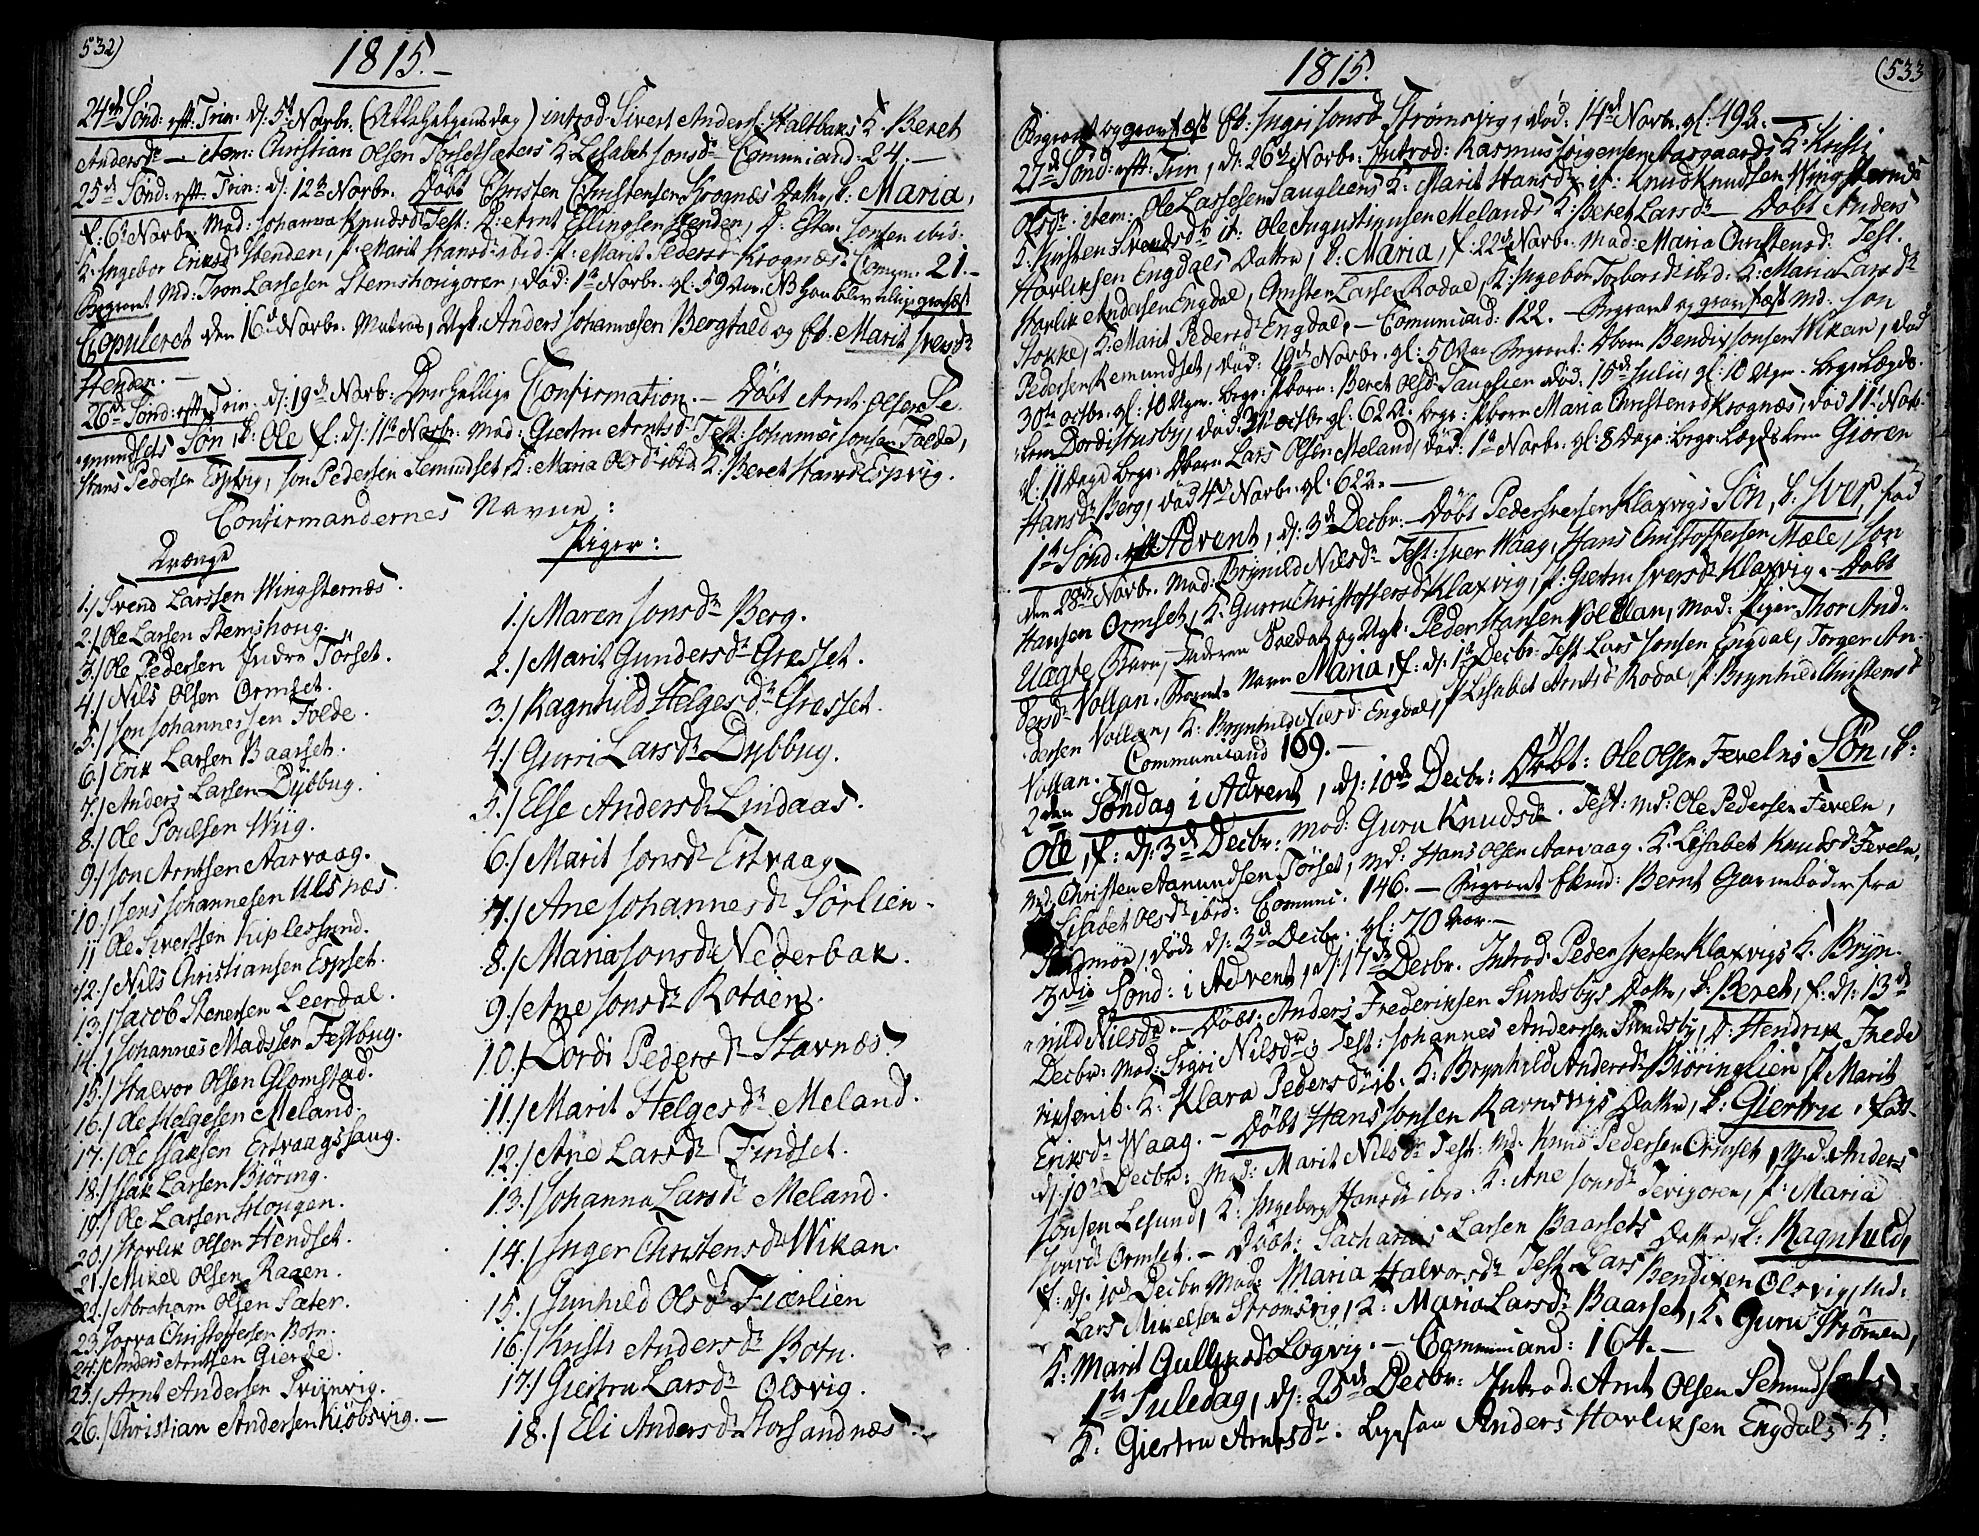 532)
1815.
24de Sønd: eft: Trin. d: 5t Novbr. (Allehelgensdag) introd: Sivert Anders: Haltbaks K. Beret
Andersd: – item: Christian Olsen Torsetsæters K: Lisabet Jonsd: Comuniand: 24. –
25d Sønd: eft: Trin: d: 12te Novbr. Døbt Christen Christensen Krognæs Datter, k: Maria,
f: 6te Novbr. Mod: Johanna Knudsd: Test: D: Arnt Ellingsen Henden, D: Esten Jonsen ibid.
K: Ingebor Eriksd: Henden, P: Marit Hansd: ibid. P: Marit Pedersd: Krognæs. Comun: 21. –
Begravet Md: Tron Larssen Stemshorigoren, død: 1te Novbr. gl: 59 Aar. NB han blev tillige grafæst
Copuleret den 16de Novbr. Matros, Ugk: Anders Johannesen Bergfald og Pb: Marit Iversd:
Henden. –
26de Sønd: eft: Trin. d: 19de Novb: Den hellige Confirmation. – Døbt Arnt Olsens Se-
mundsets Søn, k: Ole f: d: 11te Novbr: Mod: Giertru Arntsd: Test: Johannes Jonsen Folde,
Hans Pedersen Espvig, Jon Pedersen Semundset, K: Maria Olsd: ibid. K: Beret Hansd: Espvig.
Confirmandernes Navne:
Drænge
1./ Svend Larssen Wingsternæs.
2./ Ole Larsen Stemshorig.
3./ Ole Pedersen Indre Tørset.
4./ Nils Olsen Ormset.
5./ Jon Johannessen Folde.
6./ Erik Larsen Baarset.
7./ Anders Larsen Dybbug.
8./ Ole Poulsen Wiig.
9./ Jon Arntsen Aarvaag.
10./ Jens Johannesen Ulsnæs.
11 Ole Sivertsen Kiplesund.
12./ Nils Christiansen Espset.
13./ Jacob Stenersen Leerdal.
14./ Johannes Madssen Festbug.
15./ Halvor Olsen Glomstad.
16./ Ole Helgesen Meland.
17./ Ole Isaksen Ertvaagshaug.
18./ Isak Larsen Biøring.
19./ Ole Larsen Hougen.
20./ Horlik Olsen Hendset.
21./ Mikel Olsen Raaen.
22./ Abraham Olsen Sæter.
23. Torva Christoffersen Botn.
24./ Anders Arntsen Gierde.
25./ Arnt Andersen Sviinvig.
26./ Christian Andersen Kiøbsvig. –
Piger:
1./ Maren Jonsd: Berg.
2./ Marit Gundersd: Grøsset.
3./ Ragnhild Helgesd: Grøsset.
4./ Gurri Larsd: Dybbug.
5./ Else Andersd: Lindaas.
6./ Marit Jonsd: Ertvaag
7./ Ane Johannesd: Sørlien.
8./ Maria Jonsd: Nederbak.
9./ Ane Jonsd: Rotøen.
10./ Dordi Pedersd: Stavnæs.
11./ Marit Helgesd: Meland.
12./ Ane Larsd: Findset.
13./ Johanna Larsd: Meland.
14./ Inger Christensd: Wikan.
15./ Gunhild Olsd: Fiærlien
16./ Kristi Andersd: Botn.
17./ Giertru Larsd: Olsvig.
18./ Eli Andersd: Storsandnæs.
(533
1815.
Begravet og gravfæst Eb: Ingri Jonsd: Strømsvig, død. 14de Novbr. gl: 49 a. –
27de Sønd: eft: Trin, d: 26de Novbr. Introd: Rasmus Aasgaards K: Kristi
Olsd: item: Ole Larssens Saugliens K: Marit Hansd: it: Knud Knudsen Wingsternæs
K: Kirsten Svendsd: it: Ole Augustinusen Melands K: Beret Larsd: – Døbt Anders
Horliksen Engdals Datter, k: Maria, f: 22de Novbr. Mod: Maria Christensd: Test.
Horlik Andersen Engdal, Christen Larsen Rodal, K: Ingebor Torbersd: ibid: K: Maria Larsd:
Stokke, K: Marit Pedersd: Engdal, – Comuniand: 122. – Begravet og gravfæst Md: Jon
Pedersen Remundset, død: 19de Novbr. gl: 50 Aar Begravet: Dbarn Bendix Jonsen Wikan, død
30te octbr. gl: 10 Ugr. Begr: Pbarn: Beret Olsd: Sauglien død: 15de Julii, gl: 10 Ugr. Begr: Lægds-
lem Dordi Husby, død 31te octbr. gl: 62 a. begr: Pbarn Maria Christensd: Krognæs, død 11te Novbr.
gl: 11 Dage Begr: Dbarn Lars Olsen Meland, død: 1te Novbr. gl: 8 Dage: begr: Lægdslem Gioren
Hansd: Berg, død 4de Novbr. gl: 62 a. –
1te Sønd: i Advent, d: 3de Decbr. – Døbt Peder Iversen Klaxvigs Søn, k: Iver, fød
den 28de Novbr. Mod: Brynild Nilsd: Test: Iver Waag, Hans Christoffersen Mæle, Jon
Hansen Ormset, K: Gurru Christoffersd: Klaxvig, P: Giertru Iversd: Klaxvig. – Døbt
Uægte Barn, Faderen Soldat og Ugk: Peder Hansen Vollan, Mod: Pigen Thor And-
dersd: Vollan. Barnets Navn Maria, f: d: 1te Decbr: Test Lars Jonsen Engdal, Torger An-
dersen Vollan, K: Brynhild Nilsd: Engdal, P: Lisabet Arntsd: Rodal, P: Brynhild Christensd:
Vollan. Communiand 109. –
2den Søndag i Advent, d: 10de Decbr: Døbt: Ole Olsen Fevelns Søn, k:
Ole, f: d: 3de Decbr: Mod: Guru Knudsd: Test: Md: Ole Pedersen Feveln,
Md: Christen Aamundsen Tørset, Md: Hans Olsen Aarvaag. K. Lisabet Knudsd: Feveln,
Lisabet Olsd: ibid: Comuni. 146. – Begravet Ekmd: Bernt Garmboder fra
, døde d: 3de Decbr. gl: 70 Aar. –
3die Sønd: i Advent, d: 17de Decbr. Introd: Peder Iversen Klaxvigs K: Bryn-
nild Nilsd: – Døbt. Anders Frederiksen Sundsbys Datter, k: Beret, f: d: 13de
Decbr: Mod: Sigri Nilsd: Test: Johannes Andersen Sundsby, D: Hendrik Frede
riksen ib. K: Klara Pedersd: ib. K: Brynhild Andersd: Biøringlien, P: Marit
Eriksd: Waag. – Døbt Hans Jonsen Karnsvigs Datter, k: Giertru, født
d: 10de Decbr: Mod: Marit Nilsd: Test: Md: Knud Pedersen Ormset, Md: Anders
Jonsen Lesund, K: Ingeborg Hansd: ibid. K: Ane Jonsd: Tevigoren, P: Maria
Jonsd: Ormset. – Døbt: Sacharias Larsen Baarsets Datter, k: Ragnhild,
f: d: 10de Decbr Mod: Maria Halvorsd: Test: Lars Bendixen Olsvig, Md:
Lars Mikelsen Strømsvig, K: Maria Larsd: Baarset, K. Guru Strømen,
K: Marit Gullixsd: Logvig. – Communiand: 164. –
1te Juledag, d: 25de Decbr: Introd: Arnt Olsen Semundsets
K: Giertru Arntsd: . Anders Horliksen Engdals K: